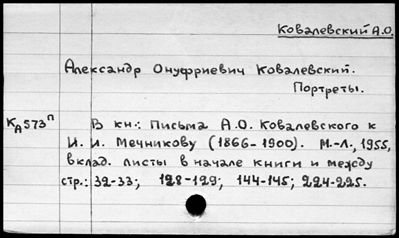 Ковалевский А.О.
Александр Онуфриевич Ковалевский.
Портреты.
КА573П В кн.: Письма А.О. Ковалевского к
И. И. Мечникову (1866-1900). М.-Л., 1955,
вклад. листы в начале книги и между
стр.: 32-33; 128-129; 144-145; 224-225.